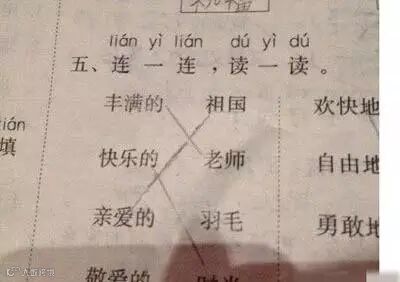 祝福
lián yì lián dú yì dú
五、连一连，读一读。
丰满的 祖国 欢快地
ián
填
快乐的 老师 自由地
亲爱的 羽毛 勇敢地
敬爱的 时光